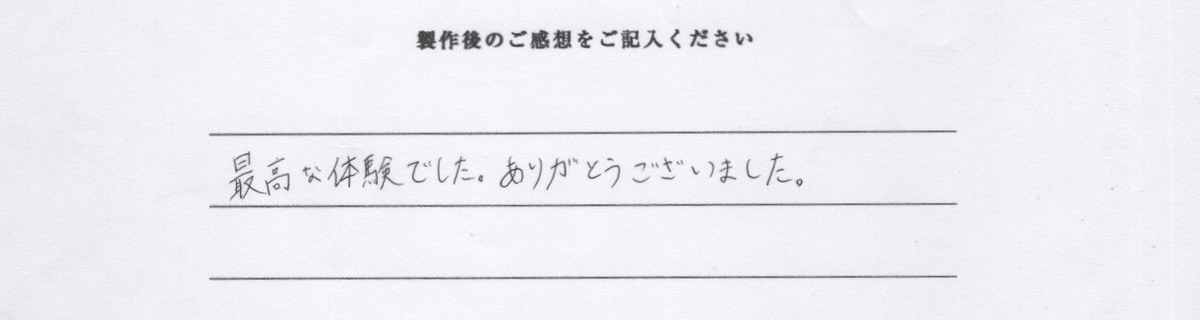 製作後のご感想をご記入ください
最高な体験でした。ありがとうございました。